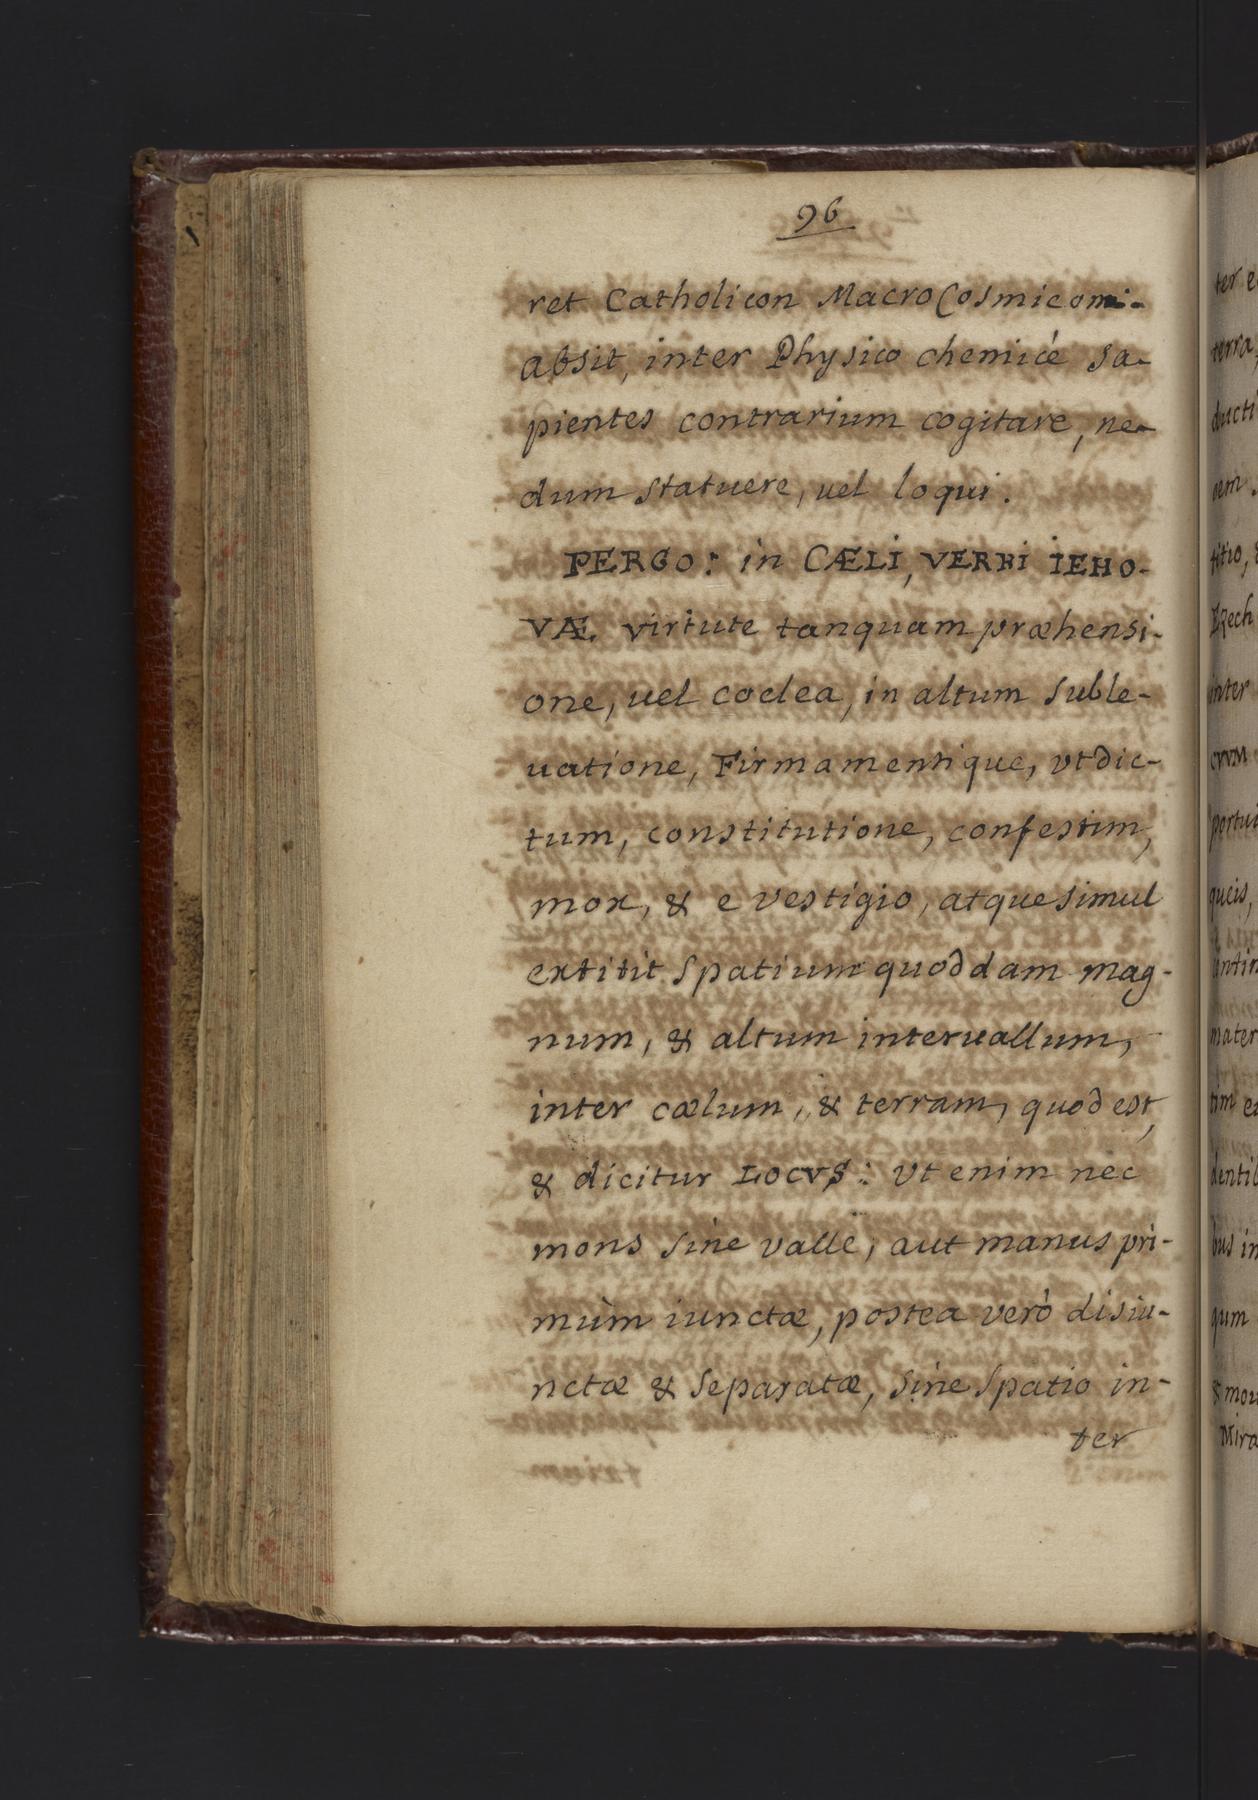 96
ret Catholicon MacroCosmicom:
absit, inter Physico chemicé sa-
pientes contrarium cogitare, ne-
dum statuere, uel loqui.
PERGO: in CÆLI, VERBI IEHO-
VÆ. virtute tanquam præhensi-
one, uel coclea, in altum suble-
uatione, Firmamentique, vt dic-
tum, constitutione, confestim,
mox, & e vestigio, atque simul
extitit spatium quoddam mag-
num, & altum interuallum,
inter cælum, & terram, quod est,
& dicitur LOCVS: Vt enim nec
mons sine valle, aut manus pri-
mùm iunctæ, postea verò disiu-
nctæ & separatæ, sine spatio in-
ter